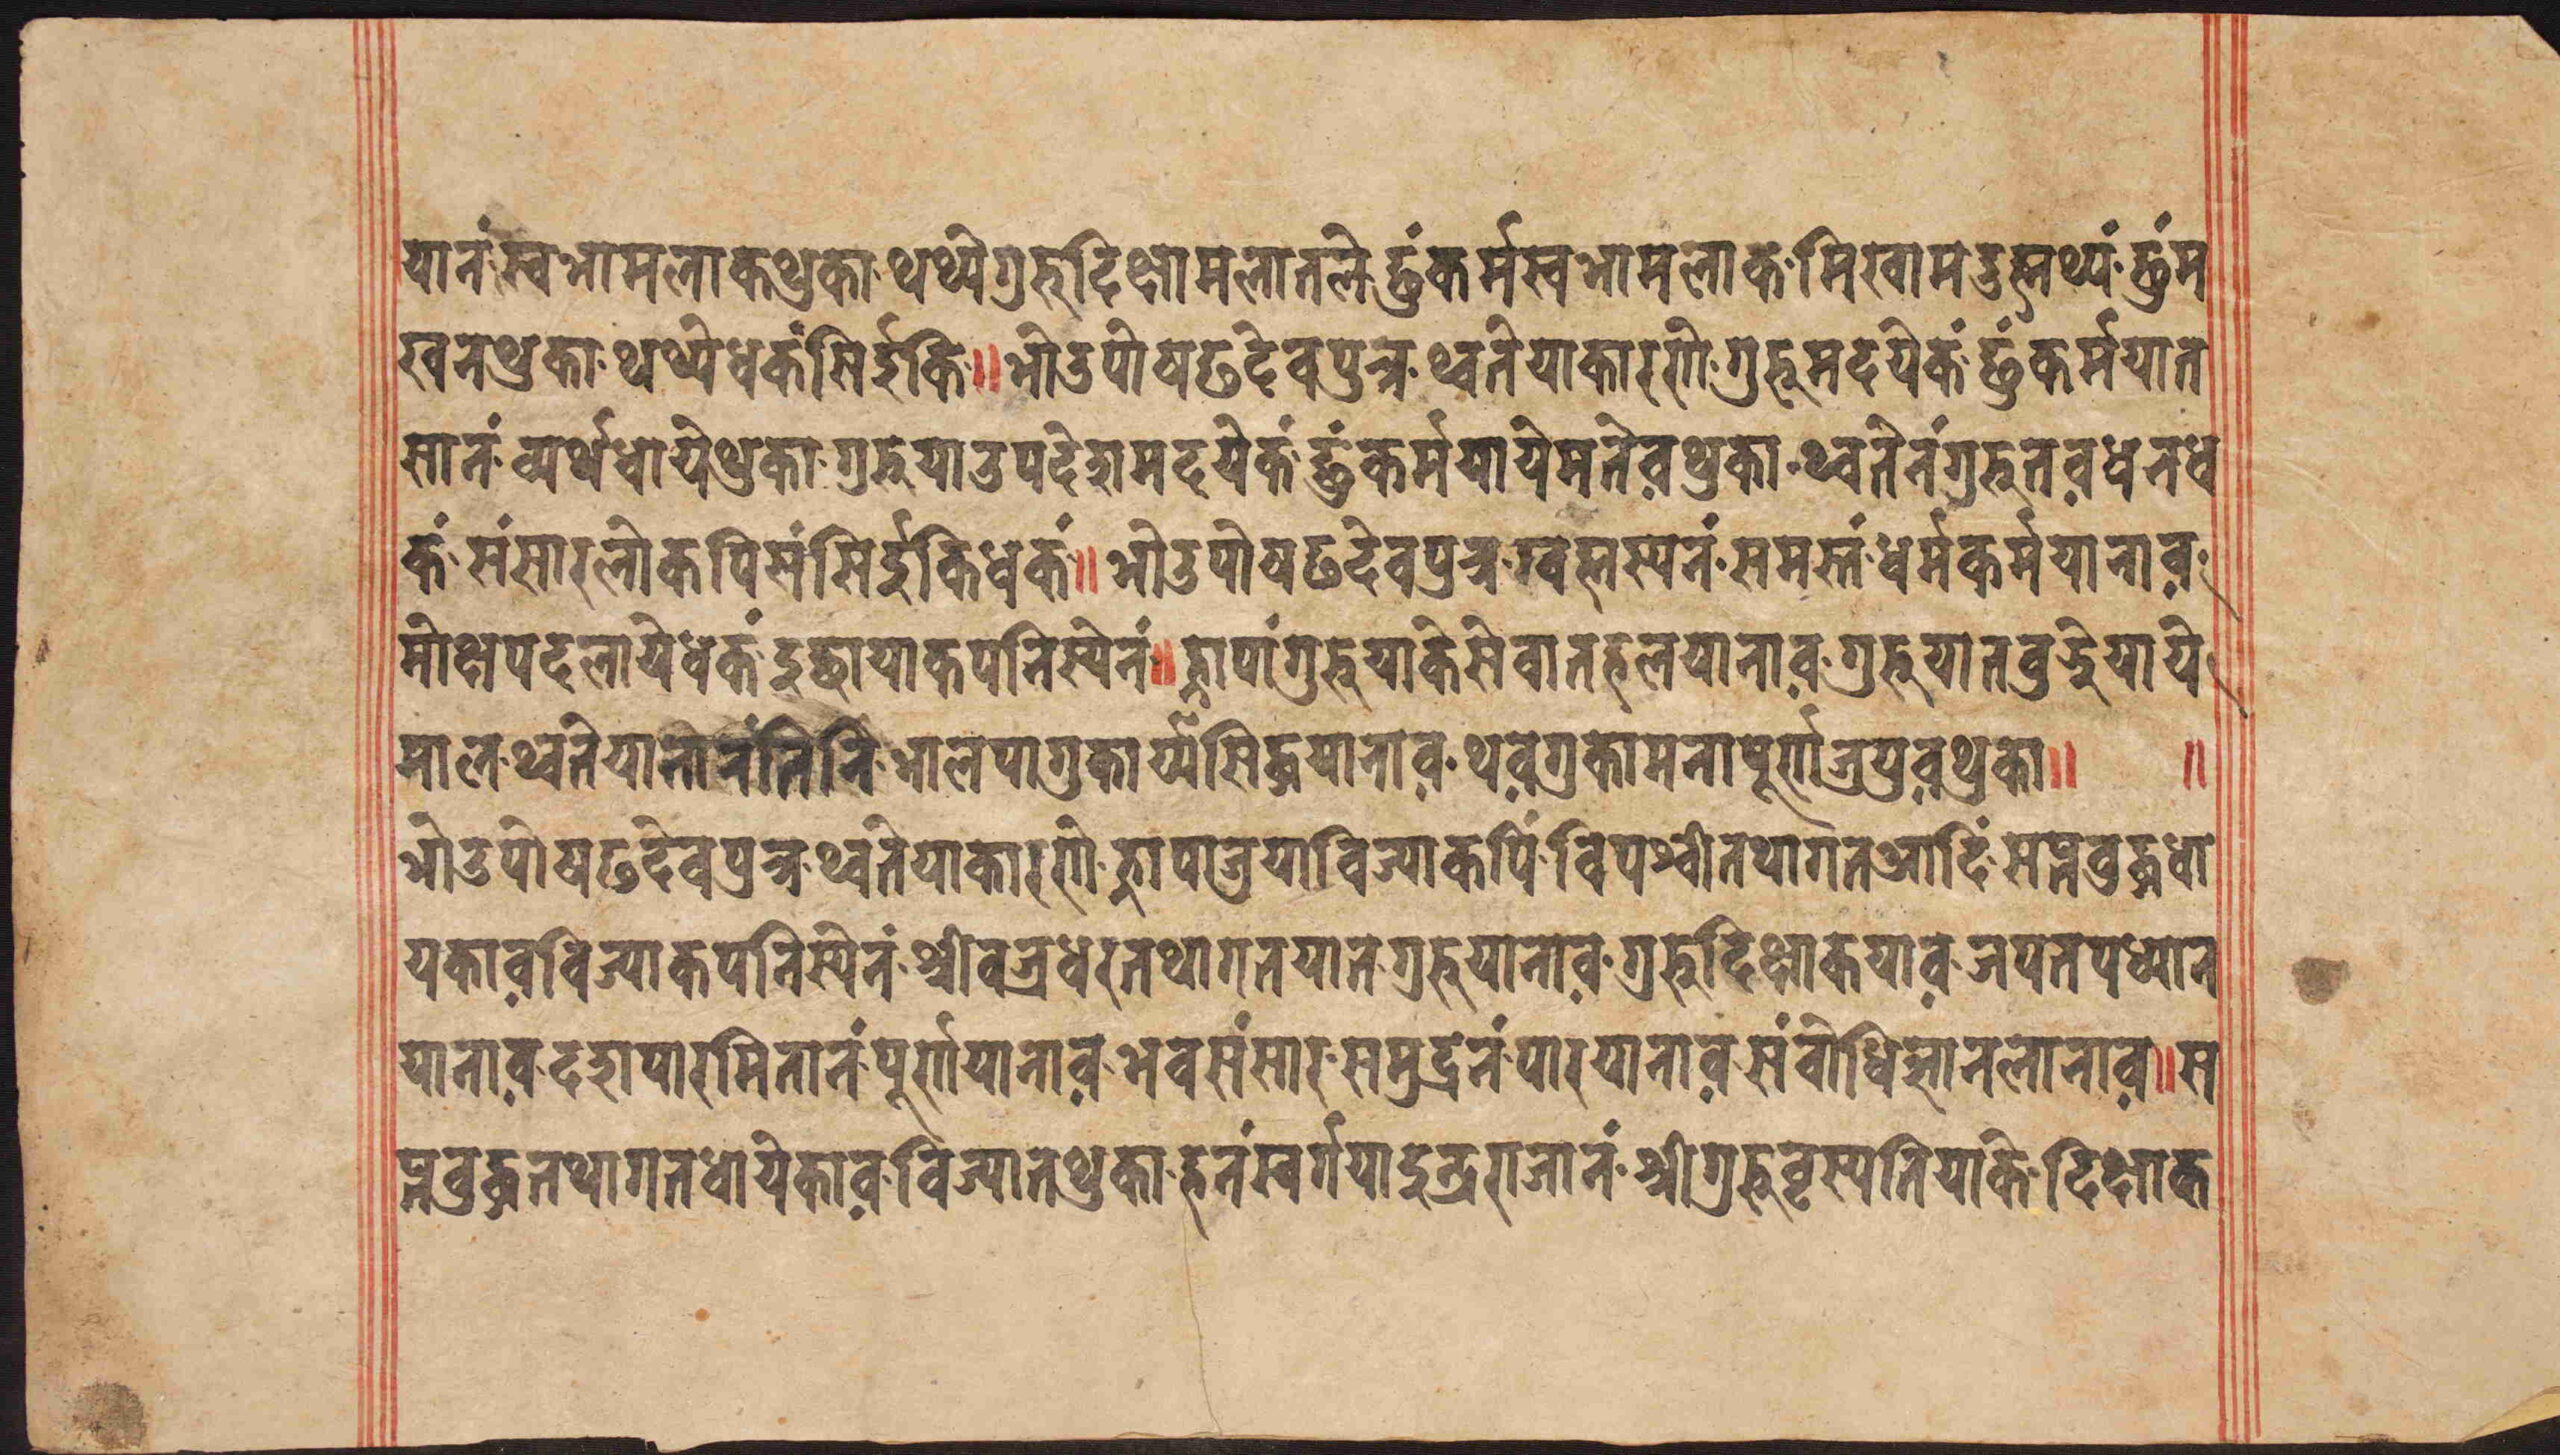 यानं॰स्वभामलाकथुका॰थथ्यंगुरुदिक्षामलातले॰छुंकर्मस्वभामलाक॰मिखामदुह्मथ्यं॰छुंम
खनथुका॰थथ्येधकंसिईकि॥भोउपोषढदेवपुत्र॰थ्वतेयाकारणे॰गुरुमदयेकं॰छुंकर्मयात
सानं॰व्यर्थधायेथुका॰गुरुयाउपदेशमदयेकं॰छुंकर्मयायेमतेवथुका॰थ्वतेनंगुरुतवधनध
कं॰संसारलोकपिसंसिईकिधकं॥भोउपोषढदेवपुत्र॰ग्वह्मस्यनं॰समस्तं॰धर्मकर्मयानाव॰
मोक्षपदलायेधकं॰इच्छायाकपनिस्येनं॥ह्नापांगुरुयाकेसेवातहलयानाव॰गुरुयातवुझेयाये
माल॰थ्वतेयातोनंतिनि॰भालपागुकार्य्यसिद्धयानाव॰थवगुकामनापूर्णजुयुवथुका॥ ॥
भोउपोषढदेवपुत्र॰थ्वतेयाकारणे॰ह्नापाजुयाविज्याकपिं॰विपश्वीतथागतआदिं॰सप्तवुद्धधा
यकावविज्याकपनिस्येनं॰श्रीवज्रधरतथागतयात॰गुरुयानाव॰गुरुदिक्षाकयाव॰जपतपध्यान
यानाव॰दशपारमितानं॰पूर्णयानाव॰भवसंसार॰समुद्रनं॰पारयानाव॰संवोधिज्ञानलानाव॥स
प्तवुद्धतथागतधायेकाव॰विज्यातथुका॰हनंस्वर्गयाइन्द्रराजानं॰श्रीगुरुवृस्पतियाके॰दिक्षाक